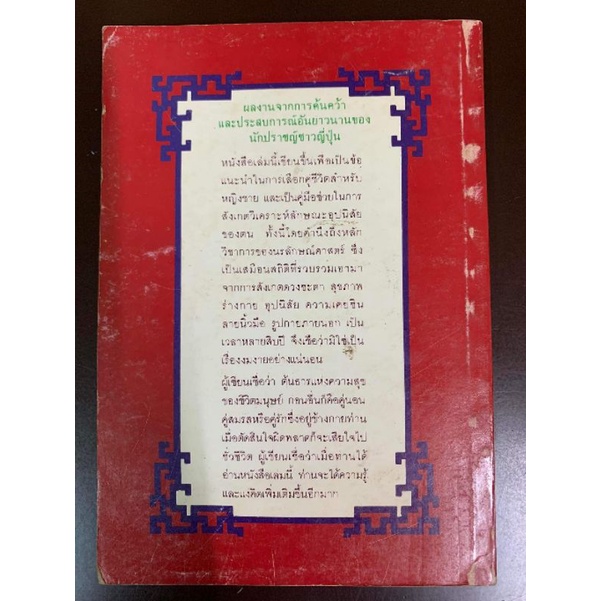 ผลงานจากการค้นคว้า
และประสบการณ์อันยาวนานของ
นักปราชญ์ชาวญี่ปุ่น
หนังสือเล่มนี้เขียนขึ้นเพื่อเป็นข้อ
แนะนำในการเลือกคู่ชีวิตสำหรับ
หญิงชาย และเป็นคู่มือช่วยในการ
สังเกตวิเคราะห์ลักษณะอุปนิสัย
ของตน ทั้งนี้โดยคำนึงถึงหลัก
วิชาการของนรลักษณ์ศาสตร์ ซึ่ง
เป็นเสมือนสถิติที่รวบรวมเอามา
จากการสังเกตดวงชะตา สุขภาพ
ร่างกาย อุปนิสัย ความเคยชิน
ลายนิ้วมือ รูปกายภายนอก เป็น
เวลาหลายสิบปี จึงเชื่อว่ามิใช่เป็น
เรื่องงมงายอย่างแน่นอน
ผู้เขียนเชื่อว่า ต้นธารแห่งความสุข
ของชีวิตมนุษย์ ก่อนอื่นก็คือคู่นอน
คู่สมรสหรือคู่รักซึ่งอยู่ข้างกายท่าน
เมื่อตัดสินใจผิดพลาดก็จะเสียใจไป
ชั่วชีวิต ผู้เขียนเชื่อว่าเมื่อท่านได้
อ่านหนังสือเล่มนี้ ท่านจะได้ความรู้
และแง่คิดเพิ่มเติมขึ้นอีกมาก